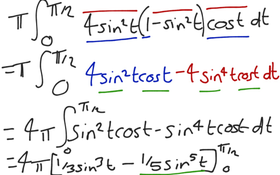 π∫₀^{π/2} 4sin²t(1-sin²t)cost dt
=π∫₀^{π/2} 4sin²tcost-4sin⁴tcost dt
=4π∫₀^{π/2} sin²tcost-sin⁴tcost dt
=4π[1/3sin³t - 1/5sin⁵t]₀^{π/2}